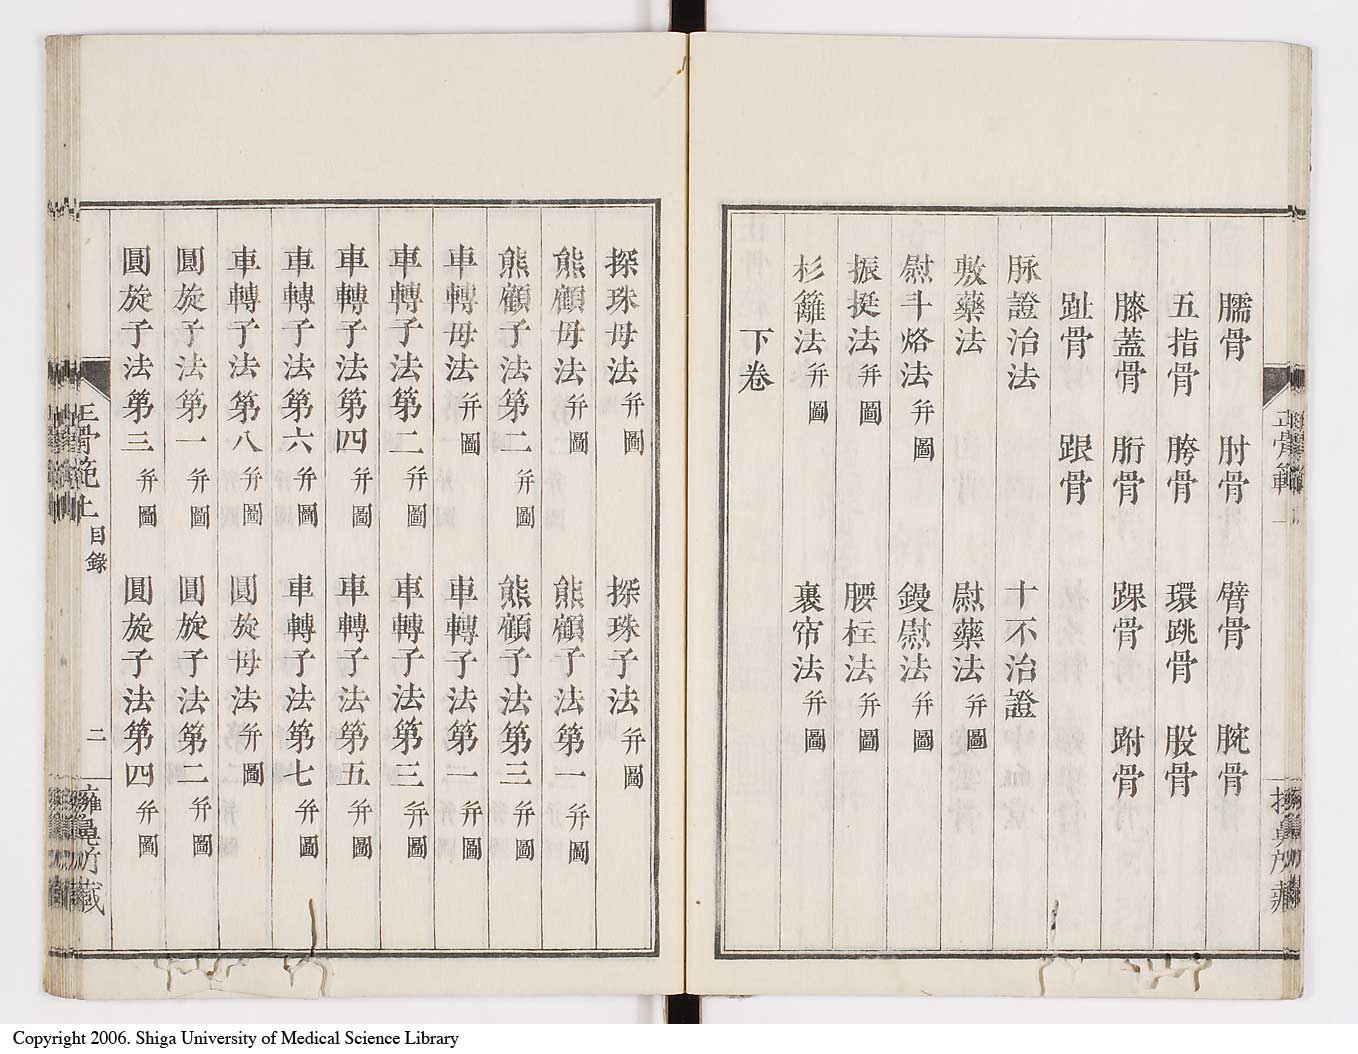 臑骨 肘骨 臂骨 腕骨
五指骨 胯骨 環跳骨 股骨
膝蓋骨 胻骨 踝骨 跗骨
趾骨 跟骨
脉證治法 十不治證
敷藥法 熨藥法 并圖
熨斗烙法 并圖 鏝熨法 并圖
振挺法 并圖 腰柱法 并圖
杉籬法 并圖 裹帘法 并圖
下卷
探珠母法 并圖 探珠子法 并圖
熊顧母法 并圖 熊顧子法第一 并圖
熊顧子法第二 并圖 熊顧子法第三 并圖
車轉母法 并圖 車轉子法第一 并圖
車轉子法第二 并圖 車轉子法第三 并圖
車轉子法第四 并圖 車轉子法第五 并圖
車轉子法第六 并圖 車轉子法第七 并圖
車轉子法第八 并圖 圓旋母法 并圖
圓旋子法第一 并圖 圓旋子法第二 并圖
圓旋子法第三 并圖 圓旋子法第四 并圖
正骨範上 目錄 二
Copyright 2006. Shiga University of Medical Science Library